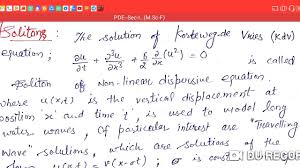 PDE-Secn. (M.Sc-F)
Solitons: The solution of Korteweg-de Vries (KdV)
equation; ∂u/∂t + ∂³u/∂x³ + 6/2 ∂/∂x (u²) = 0 is called
Soliton of Non-linear dispersive equation.
where u(x,t) is the vertical displacement at
position x and time t, is used to model long
water waves, Of particular interest are "Travelling
Wave" solutions, which are solutions of the